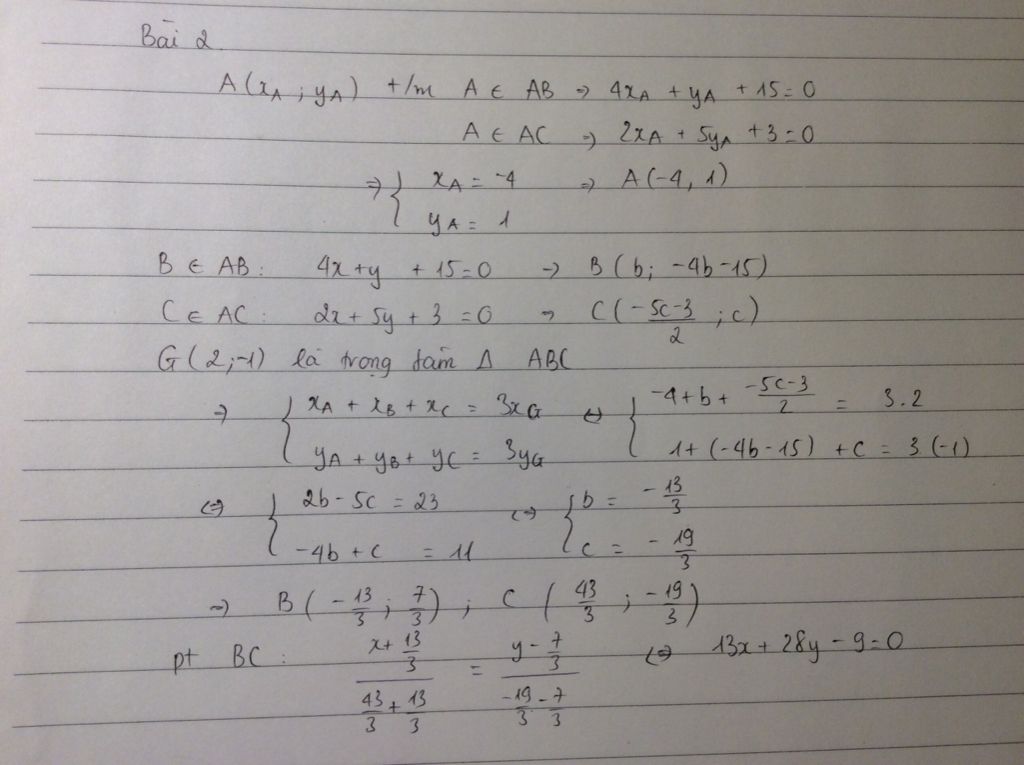 Bài 2
A(x_A ; y_A) t/m A ∈ AB => 4x_A + y_A + 15 = 0
A ∈ AC => 2x_A + 5y_A + 3 = 0
=> { x_A = -4 => A(-4, 1)
y_A = 1
B ∈ AB : 4x + y + 15 = 0 -> B(b; -4b-15)
C ∈ AC : 2x + 5y + 3 = 0 -> C(\frac{-5c-3}{2} ; c)
G(2;-1) là trọng tâm Δ ABC
=> { x_A + x_B + x_C = 3x_G <=> { -4 + b + \frac{-5c-3}{2} = 3.2
y_A + y_B + y_C = 3y_G 1 + (-4b-15) + c = 3.(-1)
<=> { 2b - 5c = 23 <=> { b = -\frac{13}{3}
-4b + c = 11 c = -\frac{19}{3}
=> B(-\frac{13}{3} ; \frac{7}{3}) ; C(\frac{43}{3} ; -\frac{19}{3})
pt BC : \frac{x + \frac{13}{3}}{\frac{43}{3} + \frac{13}{3}} = \frac{y - \frac{7}{3}}{\frac{-19}{3} - \frac{7}{3}} <=> 13x + 28y - 9 = 0